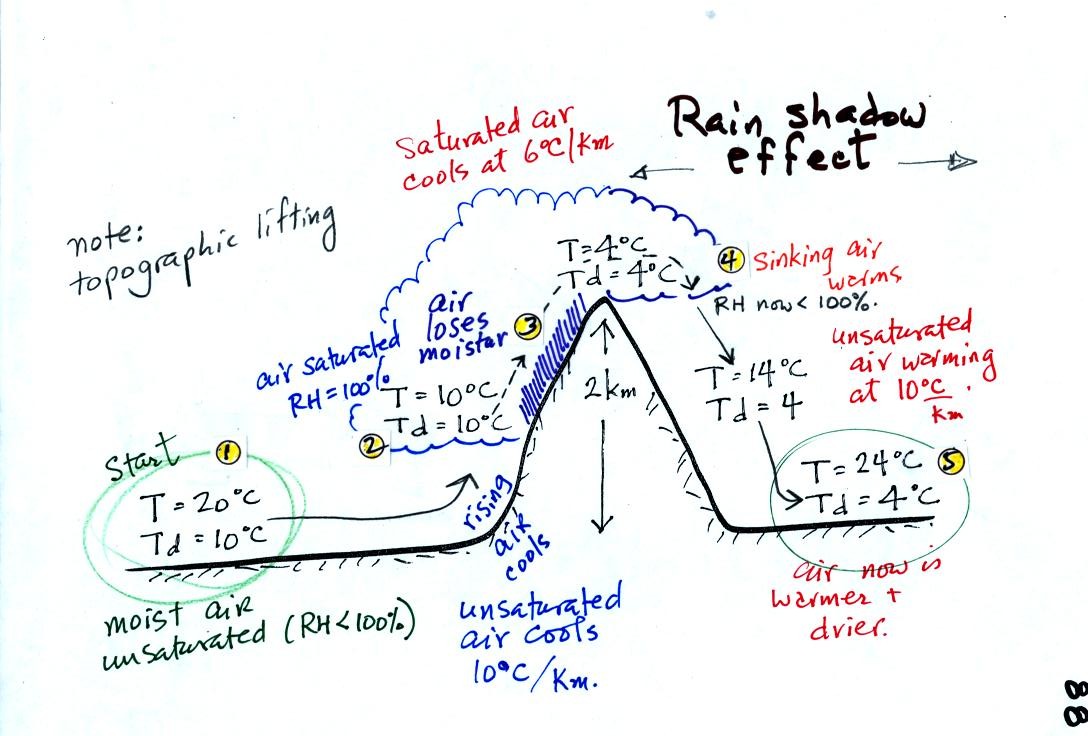 Rain shadow
effect
Saturated air
cools at 6°C/Km
note:
topographic lifting
Start
1
T = 20°C
Td = 10°C
moist air
unsaturated (RH<100%)
rising
air
cools
unsaturated
air cools
10°C/Km.
2
air saturated
RH=100%
T = 10°C
Td = 10°C
3
air
loses
moistar
T=4°C
Td=4°C
2km
4
Sinking air
warms
RH now< 100%.
unsaturated
air warming
at 10°C/km.
T=14°C
Td=4
5
T=24°C
Td=4°C
air now is
warmer +
drier.
88